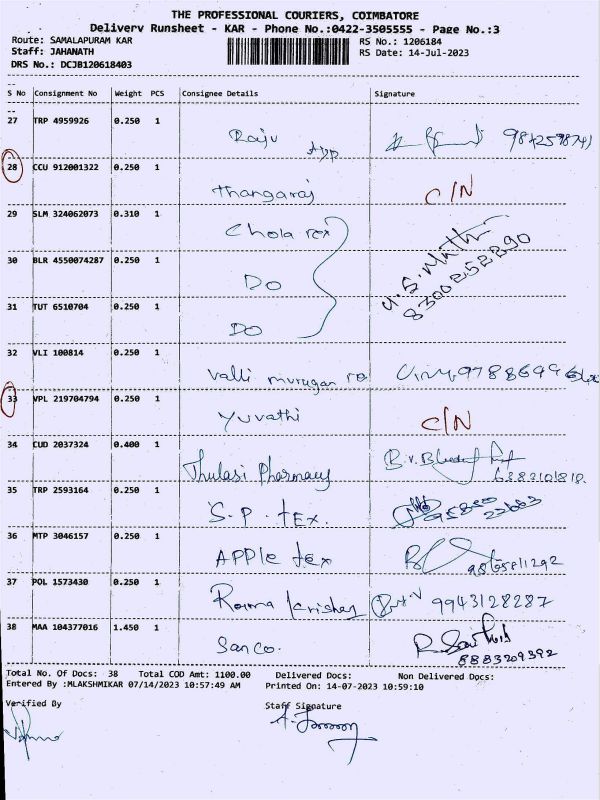 THE PROFESSIONAL COURIERS, COIMBATORE
Delivery Runsheet - KAR - Phone No.:0422-3505555 - Page No.:3
Route: SAMALAPURAM KAR
RS No.: 1206184
Staff: JAHANATH
RS Date: 14-Jul-2023
DRS No.: DCJB120618403
S No Consignment No Weight PCS Consignee Details Signature
27 TRP 4959926 0.250 1
Raju
28 CCU 912001322 0.250 1
Thangaraj C/N
29 SLM 324062073 0.310 1
Chola rex
30 BLR 4550074287 0.250 1
Do
8300252890
31 TUT 6510704 0.250 1
Do
32 VLI 100814 0.250 1
Valli murugan
33 VPL 219704794 0.250 1
Yuvathi C/N
34 CUD 2037324 0.400 1
Thulasi Pharmacy
35 TRP 2593164 0.250 1
S.P. tex.
36 MTP 3046157 0.250 1
APPle tex
37 POL 1573430 0.250 1
Rama 9943128287
38 MAA 104377016 1.450 1
Sanco. 8883209392
Total No. Of Docs: 38 Total COD Amt: 1100.00 Delivered Docs: Non Delivered Docs:
Entered By :MLAKSHMIKAR 07/14/2023 10:57:49 AM Printed On: 14-07-2023 10:59:10
Verified By Staff Signature